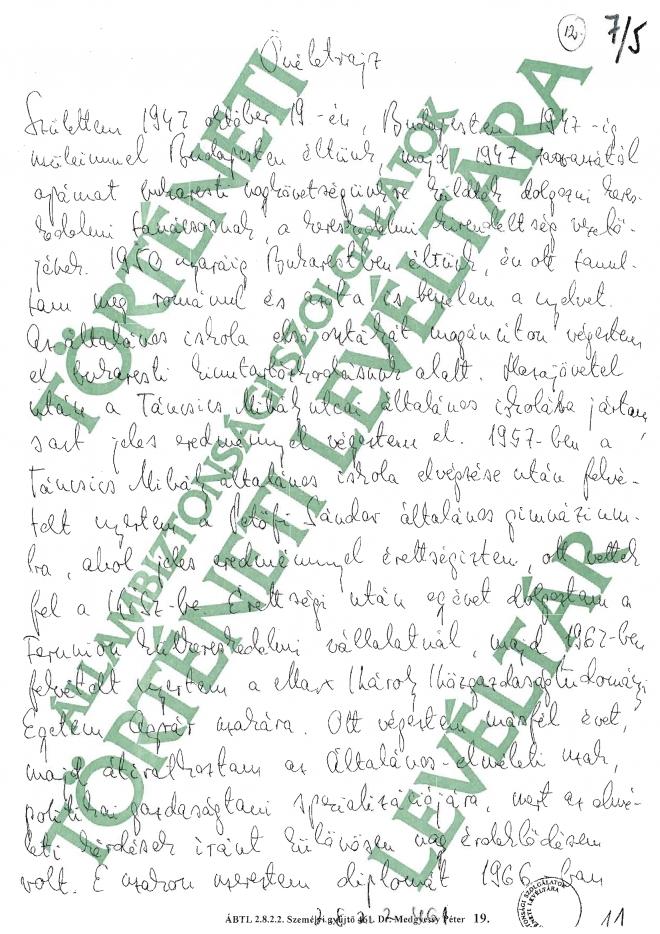 12.
7/5
Önéletrajz
Születtem 1942 október 19-én, Budapesten 1947-ig
szüleimmel Budapesten éltünk, majd 1947 tavaszától
apámat bukaresti nagykövetségünkre küldték dolgozni keres-
kedelmi tanácsosnak, a kereskedelmi kirendeltség veze-
jének. 1950 nyaráig Bukarestben éltünk, én ott tanul-
tam meg románul és azóta is beszélem a nyelvet.
Az általános iskola első osztályát magánúton végeztem
el bukaresti kinntartózkodásunk alatt. Hazajövetel
után a Táncsics Mihály utcai általános iskolába jártam,
azt jeles eredménnyel végeztem el. 1957-ben a
Táncsics Mihály általános iskola elvégzése után felvé-
telt nyertem a Petőfi Sándor általános gimnázium-
ba, ahol jeles eredménnyel érettségiztem, ott vettek
fel a KISZ-be. Érettségi után egy évet dolgoztam a
Ferunion külkereskedelmi vállalatnál, majd 1962-ben
felvételt nyertem a Marx Károly Közgazdaságtudományi
Egyetem szakára. Ott végeztem másfél évet,
majd átiratkoztam az Általános-elméleti szak,
politikai gazdaságtani specializációjára, mert az elmé-
leti kérdések iránt különösen nagy érdeklődésem
volt. E szakon szereztem diplomát 1966-ban
ÁLLAMBIZTONSÁGI SZOLGÁLATOK
TÖRTÉNETI LEVÉLTÁRA
TÖRTÉNETI LEVÉLTÁR
ÁBTL 2.8.2.2. Személyi gyűjtő 461. Dr. Medgyessy Péter 19.
11